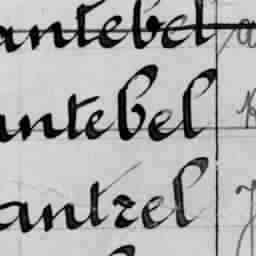 antebel
antebel
antzel